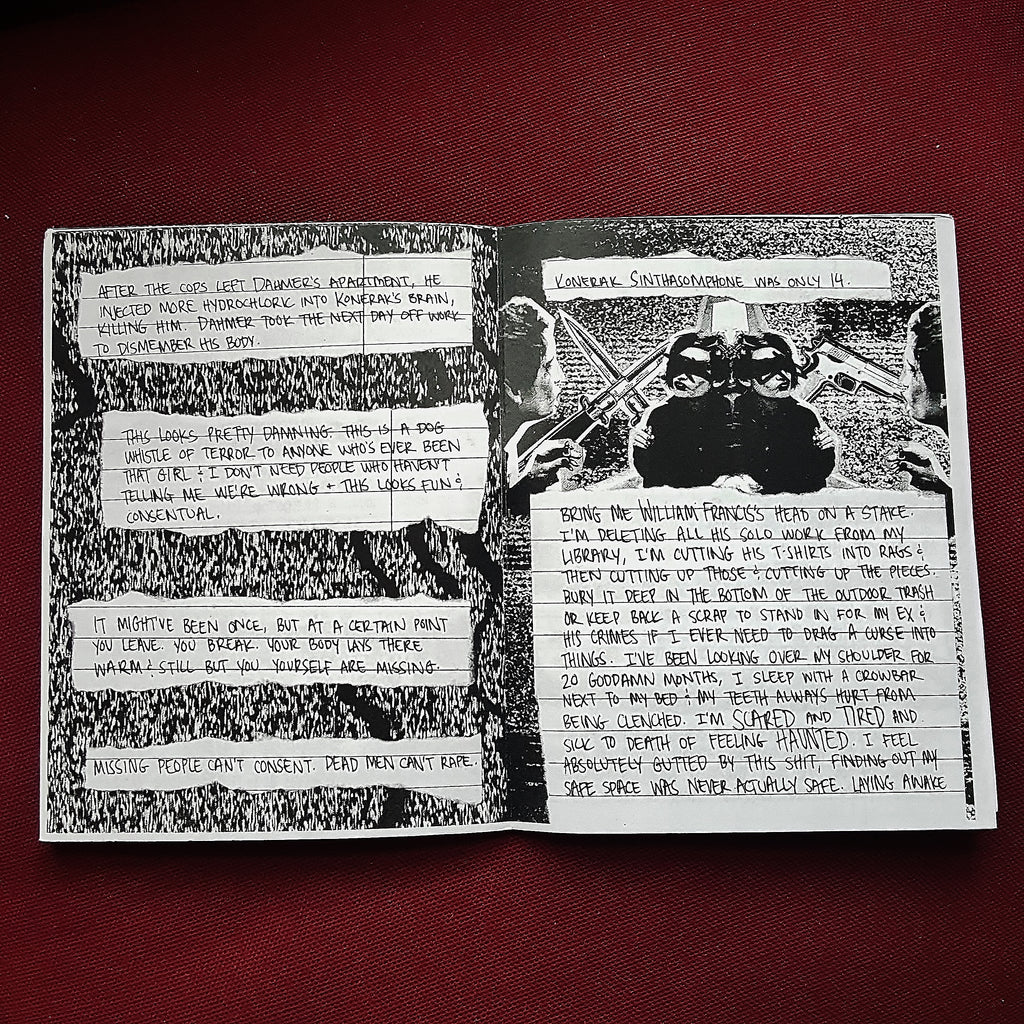 AFTER THE COPS LEFT DAHMER'S APARTMENT, HE
INJECTED MORE HYDROCHLORIC INTO KONERAK'S BRAIN,
KILLING HIM. DAHMER TOOK THE NEXT DAY OFF WORK
TO DISMEMBER HIS BODY.
THIS LOOKS PRETTY DAMNING. THIS IS A DOG
WHISTLE OF TERROR TO ANYONE WHO'S EVER BEEN
THAT GIRL & I DON'T NEED PEOPLE WHO HAVEN'T
TELLING ME WE'RE WRONG + THIS LOOKS FUN &
CONSENTUAL.
IT MIGHT'VE BEEN ONCE, BUT AT A CERTAIN POINT
YOU LEAVE. YOU BREAK. YOUR BODY LAYS THERE
WARM & STILL BUT YOU YOURSELF ARE MISSING.
MISSING PEOPLE CAN'T CONSENT. DEAD MEN CAN'T RAPE.
KONERAK SINTHASOMPHONE WAS ONLY 14.
BRING ME WILLIAM FRANCIS'S HEAD ON A STAKE.
I'M DELETING ALL HIS SOLO WORK FROM MY
LIBRARY, I'M CUTTING HIS T-SHIRTS INTO RAGS &
THEN CUTTING UP THOSE & CUTTING UP THE PIECES.
BURY IT DEEP IN THE BOTTOM OF THE OUTDOOR TRASH
OR KEEP BACK A SCRAP TO STAND IN FOR MY EX &
HIS CRIMES IF I EVER NEED TO DRAG A CURSE INTO
THINGS. I'VE BEEN LOOKING OVER MY SHOULDER FOR
20 GODDAMN MONTHS, I SLEEP WITH A CROWBAR
NEXT TO MY BED & MY TEETH ALWAYS HURT FROM
BEING CLENCHED. I'M SCARED AND TIRED AND
SICK TO DEATH OF FEELING HAUNTED. I FEEL
ABSOLUTELY GUTTED BY THIS SHIT, FINDING OUT MY
SAFE SPACE WAS NEVER ACTUALLY SAFE. LAYING AWAKE